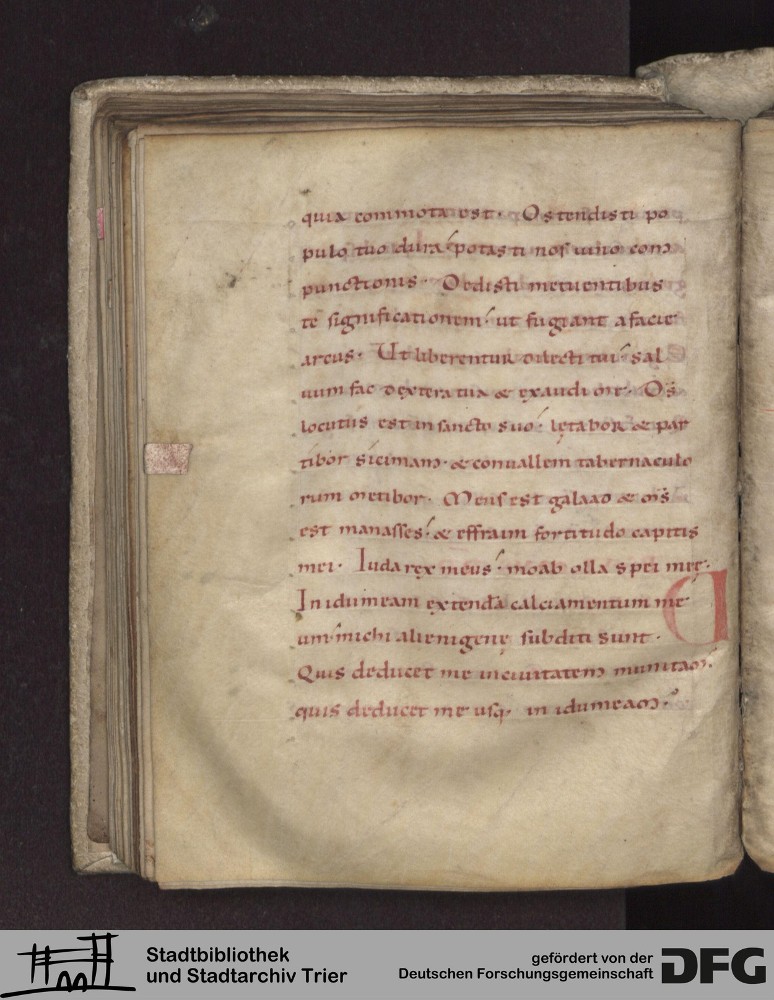 quia commota est. Ostendisti po
pulo tuo dura potasti nos uino com
punctionis. Dedisti metuentibus
te significationem ut fugiant a facie
arcus. Ut liberentur dilecti tui sal
uum fac dextera tua & exaudi me. Ds
locutus est in sancto suo letabor & par
tibor sicimam & conuallem tabernaculo
rum metibor. Meus est galaad & ms
est manasses & effraim fortitudo capitis
mei. Iuda rex meus moab olla spei meę.
In idumeam extendā calciamentum me
um michi alienigenę subditi sunt.
Quis deducet me in ciuitatem munitam.
quis deducet me usq; in idumeam.
Stadtbibliothek
und Stadtarchiv Trier
gefördert von der
Deutschen Forschungsgemeinschaft
DFG